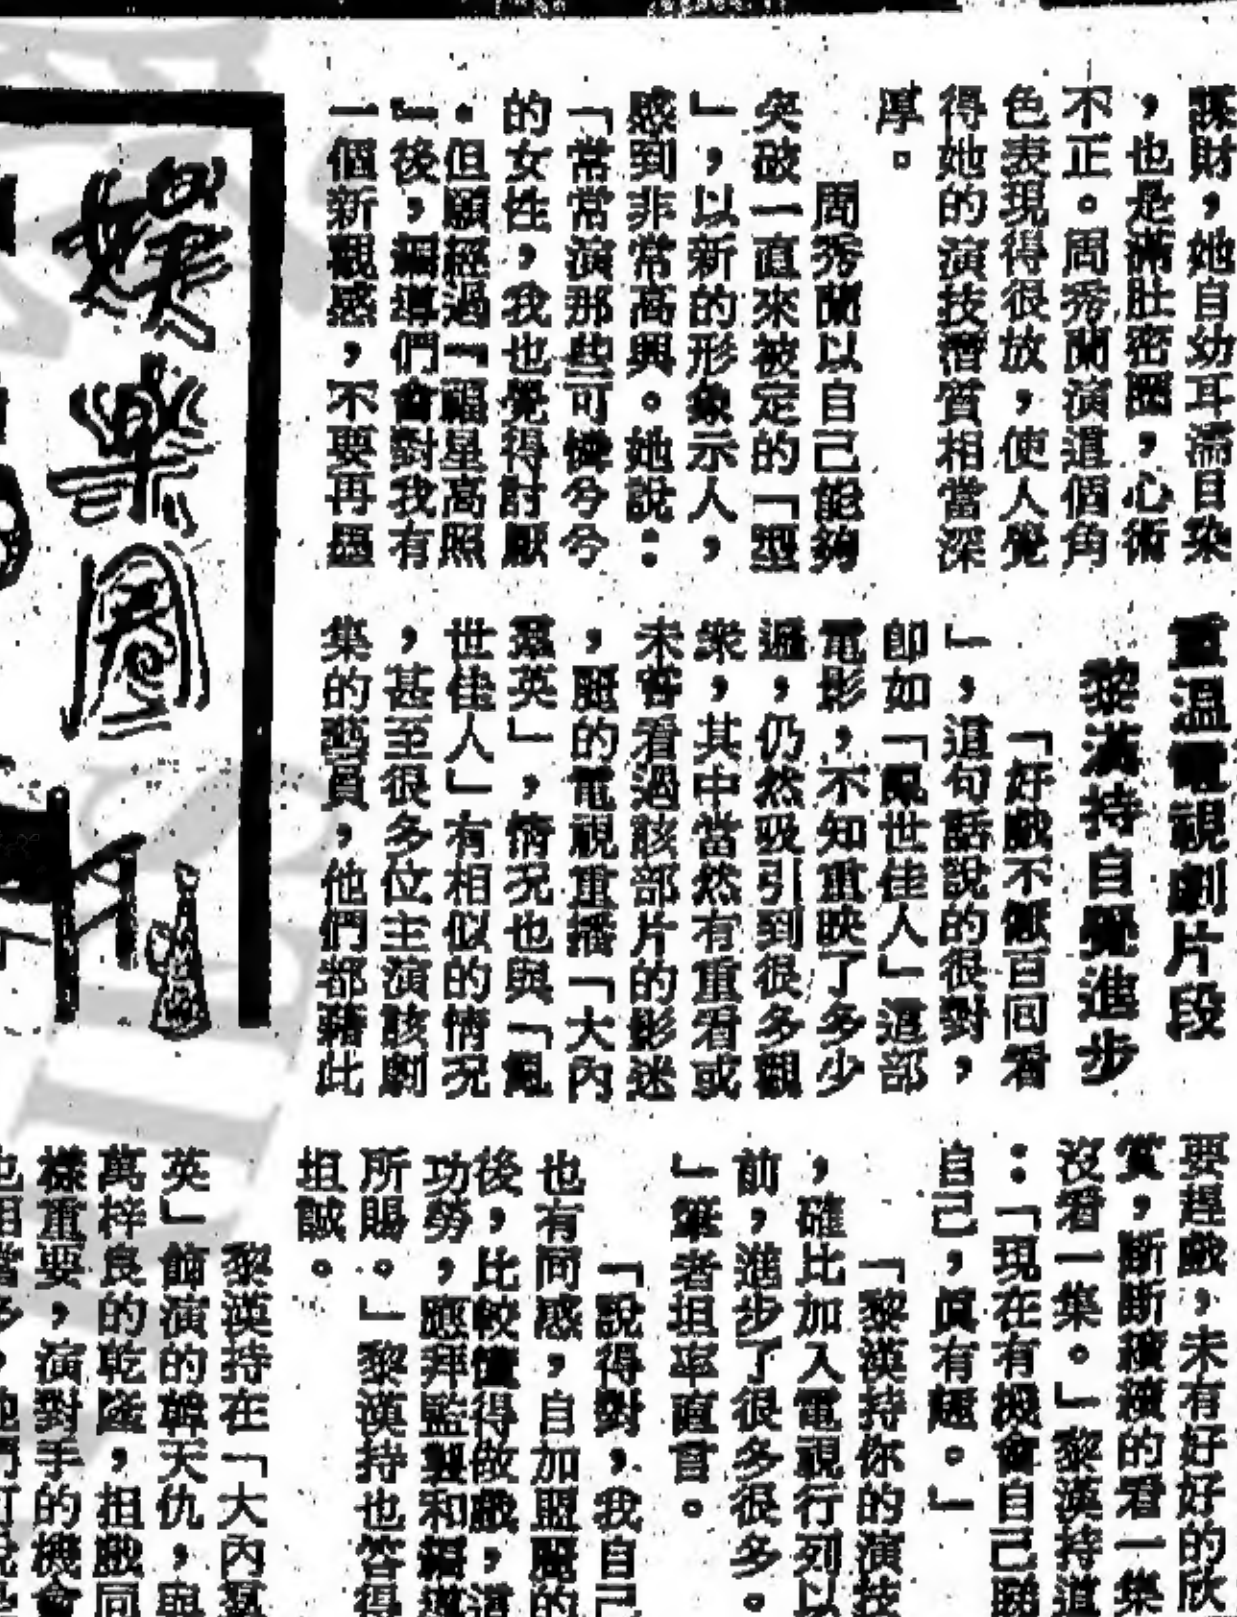 謀財，她自幼耳濡目染
，也是滿肚密圈，心術
不正。周秀蘭演這個角
色表現得很放，使人覺
得她的演技潛質相當深
厚。
周秀蘭以自己能夠
突破一直來被定的「型
」，以新的形象示人，
感到非常高興。她說：
「常常演那些可憐兮兮
的女性，我也覺得討厭
。但願經過「福星高照
」後，編導們會對我有
一個新觀感，不要再
重溫電視劇片段
黎漢持自覺進步
「好戲不厭百回看
」，這句話說的很對，
即如「亂世佳人」這部
電影，不知重映了多少
遍，仍然吸引到很多觀
衆，其中當然有重看或
未嘗看過該部片的影迷
，麗的電視重播「大內
羣英」，情況也與「亂
世佳人」有相似的情況
，甚至很多位主演該劇
集的藝員，他們都藉此
要趕戲，未有好好的欣
賞，斷斷續續的看一集
沒看一集。」黎漢持道
：「現在有機會自己睇
自己，眞有趣。」
「黎漢持你的演技
，確比加入電視行列以
前，進步了很多很多。
」筆者坦率直言。
「說得對，我自己
也有同感，自加盟麗的
後，比較懂得做戲，這
功勞，應拜監製和編導
所賜。」黎漢持也答得
坦誠。
黎漢持在「大內羣
英」飾演的韓天仇，與
萬梓良的乾隆，担戲同
樣重要，演對手的機會
娛樂圈